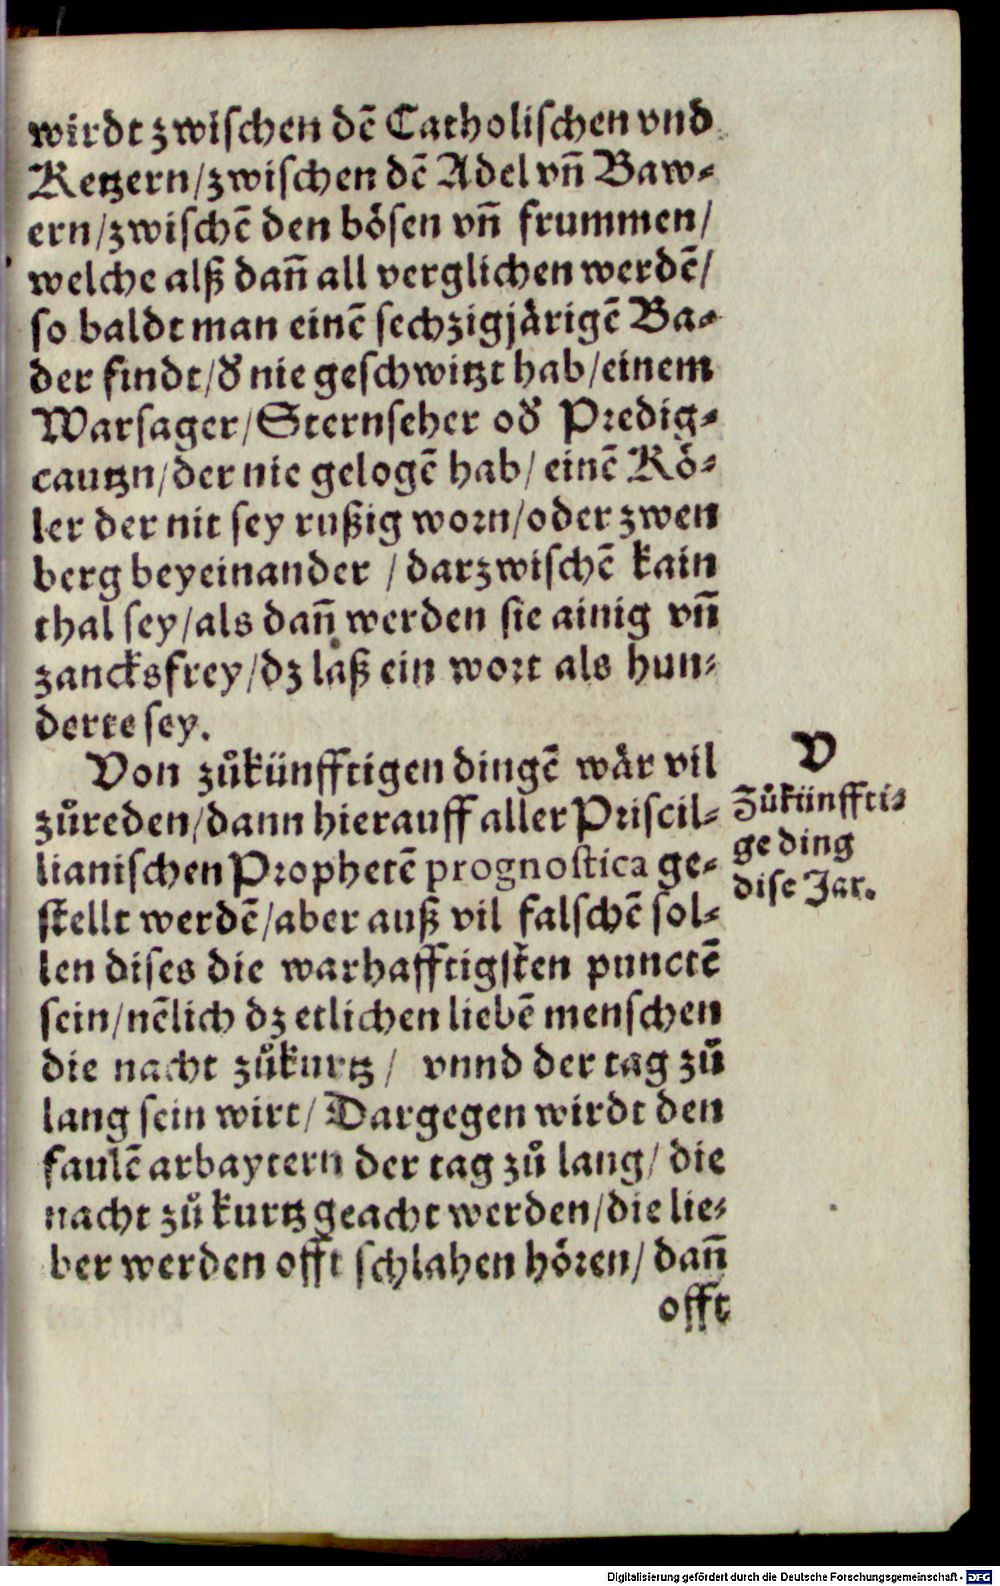 wirdt zwischen dē Catholischen vnd
Ketzern/zwischen dē Adel vn̄ Baw⸗
ern/zwischē den bösen vn̄ frummen/
welche alß dan̄ all verglichen werdē/
so baldt man einē sechzigjärigē Ba⸗
der findt/d̕ nie geschwitzt hab/einem
Warsager/Sternseher od̕ Predig⸗
cautzn/der nie gelogē hab/einē Kö⸗
ler der nit sey rußig worn/oder zwen
berg beyeinander / darzwischē kain
thal sey/als dan̄ werden sie ainig vn̄
zancksfrey/dz laß ein wort als hun⸗
derte sey.
Von zůkünfftigen dingē wär vil
zůreden/dann hierauff aller Priscil⸗
lianischen Prophetē prognostica ge⸗
stellt werdē/aber auß vil falschē sol⸗
len dises die warhafftigsten punctē
sein/nēlich dz etlichen liebē menschen
die nacht zůkurtz/ vnnd der tag zů
lang sein wirt/Dargegen wirdt den
faulē arbaytern der tag zů lang/die
nacht zů kurtz geacht werden/die lie⸗
ber werden offt schlahen hören/dan̄
offt
V
Zůkünffti⸗
ge ding
dise Jar.
Digitalisierung gefördert durch die Deutsche Forschungsgemeinschaft - DFG